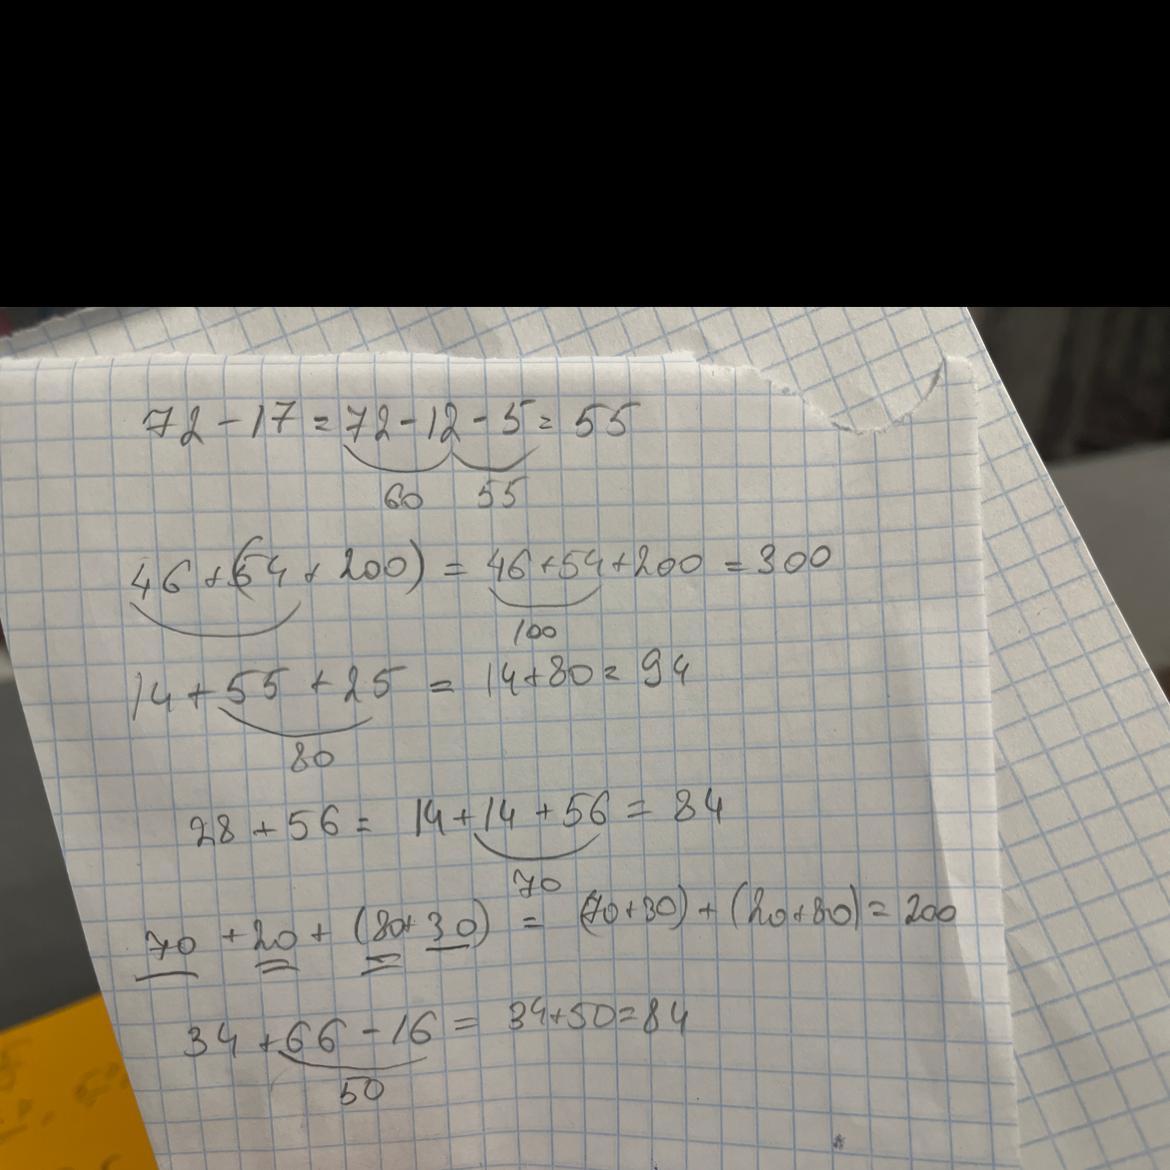 72 - 17 = 72 - 12 - 5 = 55
60 55
46 + (54 + 200) = 46 + 54 + 200 = 300
100
14 + 55 + 25 = 14 + 80 = 94
80
28 + 56 = 14 + 14 + 56 = 84
70
70 + 20 + (80 + 30) = (70 + 30) + (20 + 80) = 200
34 + 66 - 16 = 34 + 50 = 84
50